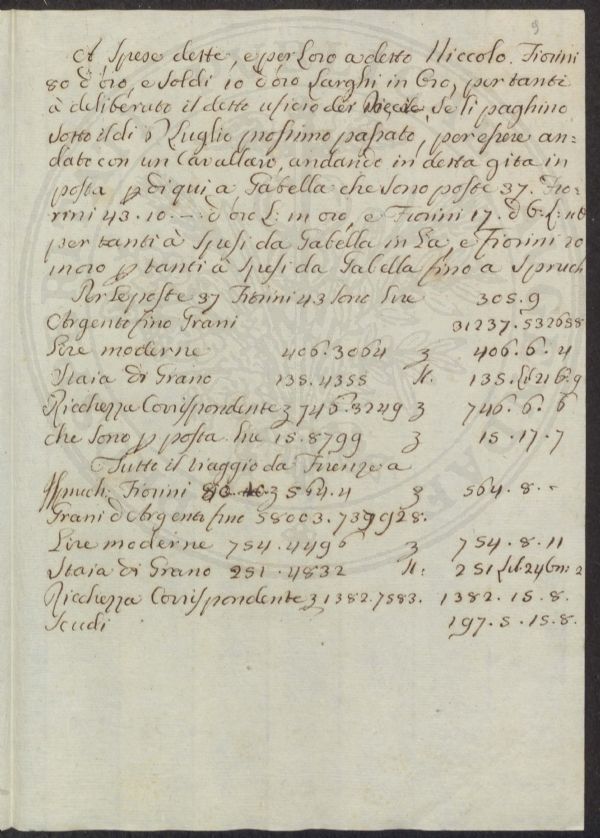 9
A Spese dette, e per Loro a detto Niccolo. Fiorini
80 d'oro, e Soldi 10 d'oro Larghi in Oro, per tanti
à deliberato il detto ufício dei Se li paghino
Sotto il di Luglio prossimo passato, per essere an=
dato con un Cavallaro, andando in detta gita in
posta p di qui a Gabella che sono poste 37. Fio-
rini 43. 10. — d'oro L: in oro, e Fiorini 17. d'6:
per tanti à Spesi da Gabella in La, e fiorini 20
in oro p tanti à Spesi da Gabella fino a Spruch
Per le poste 37 Fiorini 43 sono Lire 305. 9
Argento fino Grani 31237. 532658
Lire moderne 406. 3064 3 406. 6. 4
Staia di Grano 135. 4355 St. 135. 21 6. 9
Ricchezza Corrispondente 3 746. 3249 3 746. 6. 6
che sono p posta Lire 15. 8799 3 15. 17. 7
Tutto il viaggio da Firenze a
Spruch Fiorini 80. 10. 3 564. 4 3 564. 8. -
Grani d'Argento fino 58003. 739928.
Lire moderne 754. 4496 3 754. 8. 11
Staia di Grano 251. 4832 St: 251 24 6 2
Ricchezza Corrispondente 3 1382. 7583. 1382. 15. 8.
Scudi 197. 5. 15. 8.